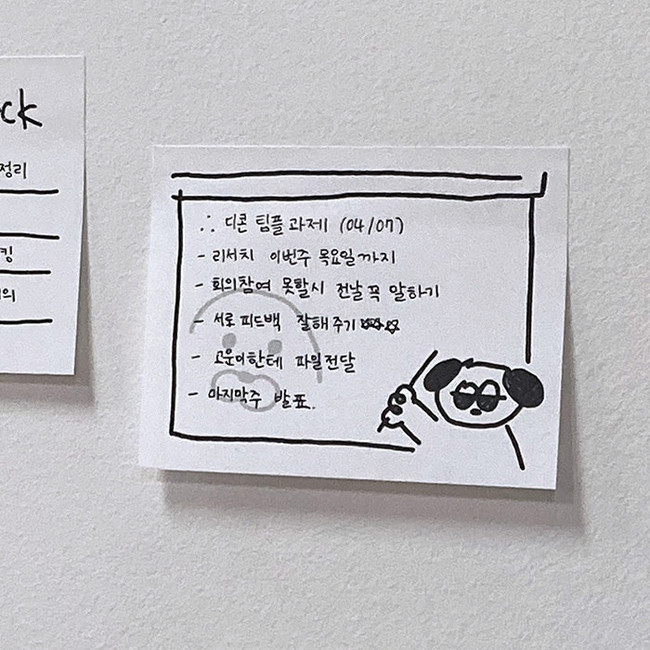 ck
정리
킹
의
∴ 디콘 팀플 과제 (04/07)
- 리서치 이번주 목요일까지
- 회의참여 못할시 전날 꼭 말하기
- 서로 피드백 잘해주기 ☆☆☆
- 고운이한테 파일전달
- 마지막주 발표.